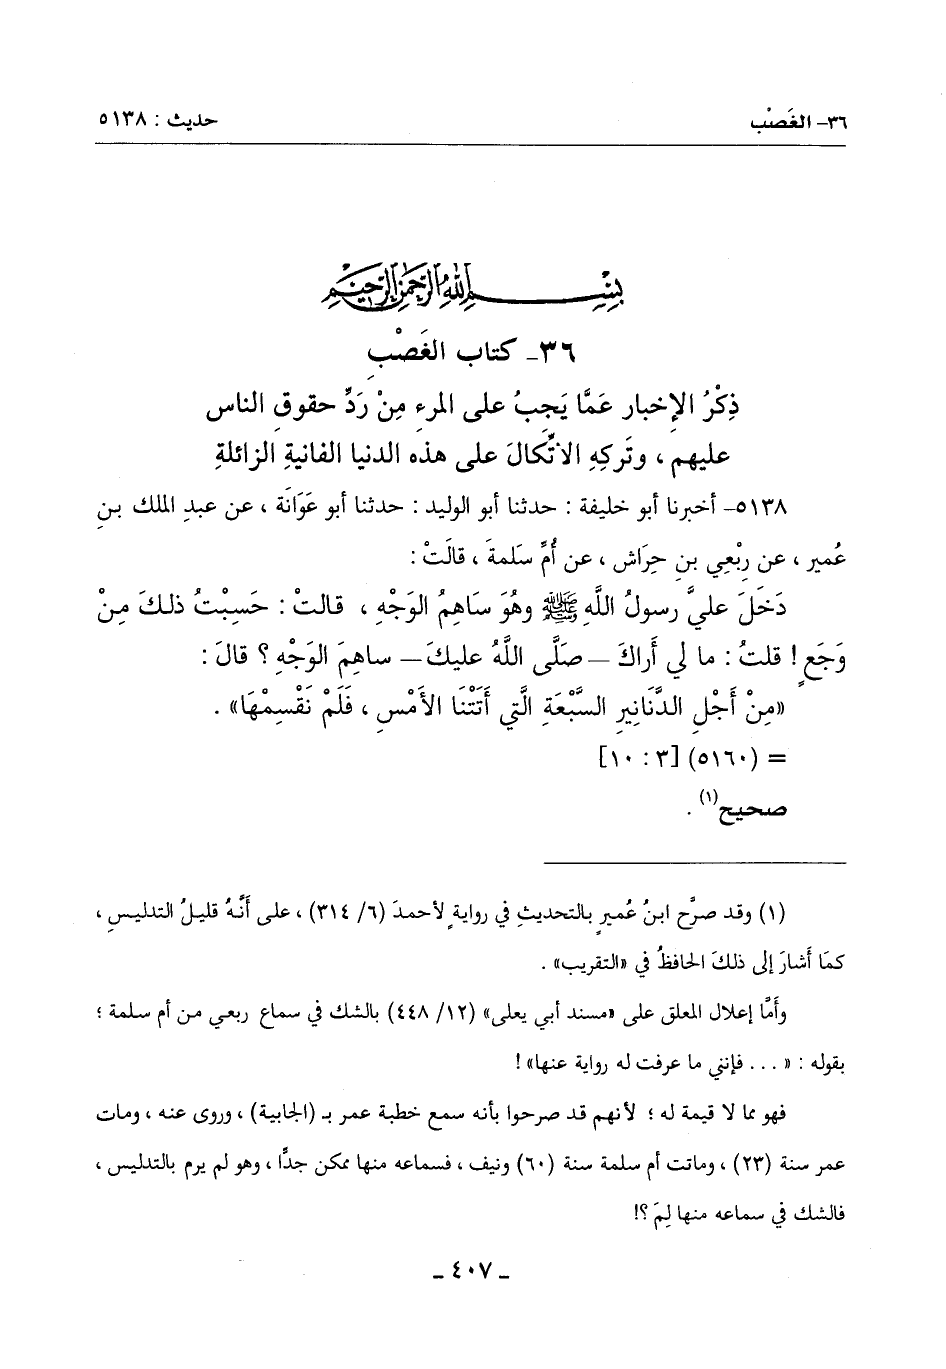 ٣٦- الغَصْب
حديث : ٥١٣٨
بِسْمِ اللهِ الرَّحْمنِ الرَّحِيمِ
٣٦- كتاب الغَصْبِ
ذِكْرُ الإخبارِ عَمَّا يَجِبُ على المرءِ مِنْ رَدِّ حقوقِ الناس
عليهم ، وتَركِهِ الاتِّكالَ على هذه الدنيا الفانيةِ الزائلةِ
٥١٣٨- أخبرنا أبو خليفة : حدثنا أبو الوليد : حدثنا أبو عَوَانَة ، عن عبدِ الملك بنِ
عُمير ، عن رِبْعي بنِ حِرَاش ، عن أُمِّ سَلمةَ ، قالَتْ :
دَخَلَ عليَّ رسولُ اللَّهِ ﷺ وهُوَ سَاهِمُ الوَجْهِ ، قالتْ : حَسِبْتُ ذلكَ مِنْ
وَجَعٍ ! قلتُ : ما لي أَراكَ – صلَّى اللَّهُ عليكَ – ساهِمَ الوَجْهِ ؟ قالَ :
«مِنْ أَجْلِ الدَّنَانِيرِ السَّبْعَةِ الَّتِي أَتَتْنَا الأَمْسِ ، فَلَمْ نَقْسِمْهَا» .
= (٥١٦٠) [٣ : ١٠]
صحيح(١) .
(١) وقد صرَّح ابنُ عُميرٍ بالتحديثِ في روايةٍ لأحمدَ (٦/ ٣١٤) ، على أَنَّهُ قليلُ التدليسِ ،
كمَا أَشارَ إلى ذلكَ الحافظُ في «التقريب» .
وأَمَّا إعلال المعلق على «مسند أبي يعلى» (١٢/ ٤٤٨) بالشك في سماع ربعي من أم سلمة ؛
بقوله : « ... فإنني ما عرفت له رواية عنها» !
فهو مما لا قيمة له ؛ لأنهم قد صرحوا بأنه سمع خطبة عمر بـ (الجابية) ، وروى عنه ، ومات
عمر سنة (٢٣) ، وماتت أم سلمة سنة (٦٠) ونيف ، فسماعه منها ممكن جدًّا ، وهو لم يرم بالتدليس ،
فالشك في سماعه منها لِمَ ؟!
- ٤٠٧ -